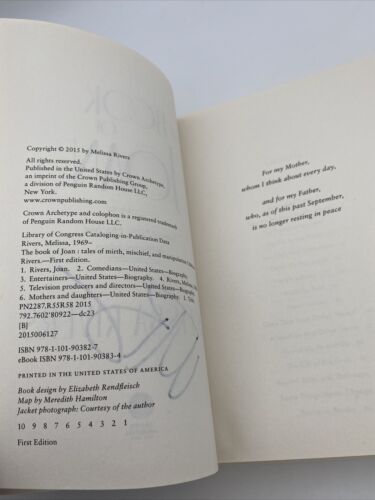 Copyright © 2015 by Melissa Rivers
All rights reserved.
Published in the United States by Crown Archetype,
an imprint of the Crown Publishing Group,
a division of Penguin Random House LLC,
New York.
www.crownpublishing.com
Crown Archetype and colophon is a registered trademark
of Penguin Random House LLC.
Library of Congress Cataloging-in-Publication Data
Rivers, Melissa, 1969–
The book of Joan : tales of mirth, mischief, and manipulation /
Rivers.—First edition.
1. Rivers, Joan. 2. Comedians—United States—Biography.
3. Entertainers—United States—Biography. 4. Rivers,
5. Television producers and directors—United States—Biography.
6. Mothers and daughters—United States—Biography. I.
PN2287.R55R58 2015
792.7602'80922—dc23
[B]
2015006127
ISBN 978-1-101-90382-7
eBook ISBN 978-1-101-90383-4
PRINTED IN THE UNITED STATES OF AMERICA
Book design by Elizabeth Rendfleisch
Map by Meredith Hamilton
Jacket photograph: Courtesy of the author
10 9 8 7 6 5 4 3 2 1
First Edition
For my Mother,
whom I think about every day,
and for my Father,
who, as of this past September,
is no longer resting in peace